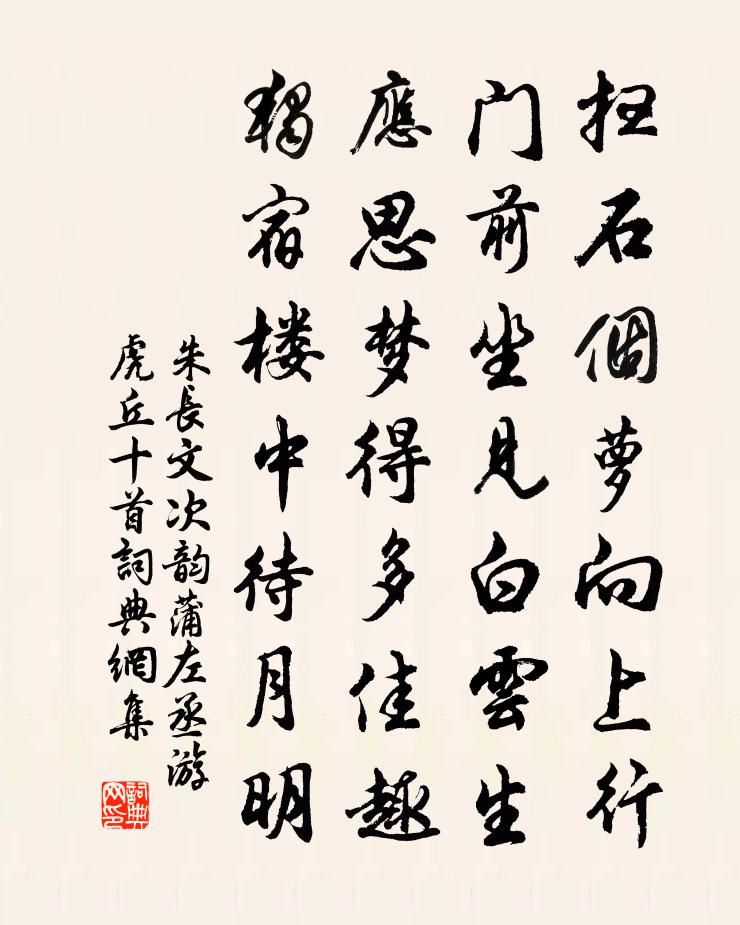 石個萝向上行
门前坐見白雲生
應思梦得多佳趣
獨宿楼中待月明
朱長文次韵蒲左丞游
虎丘十首詞典網集
詞典
网印